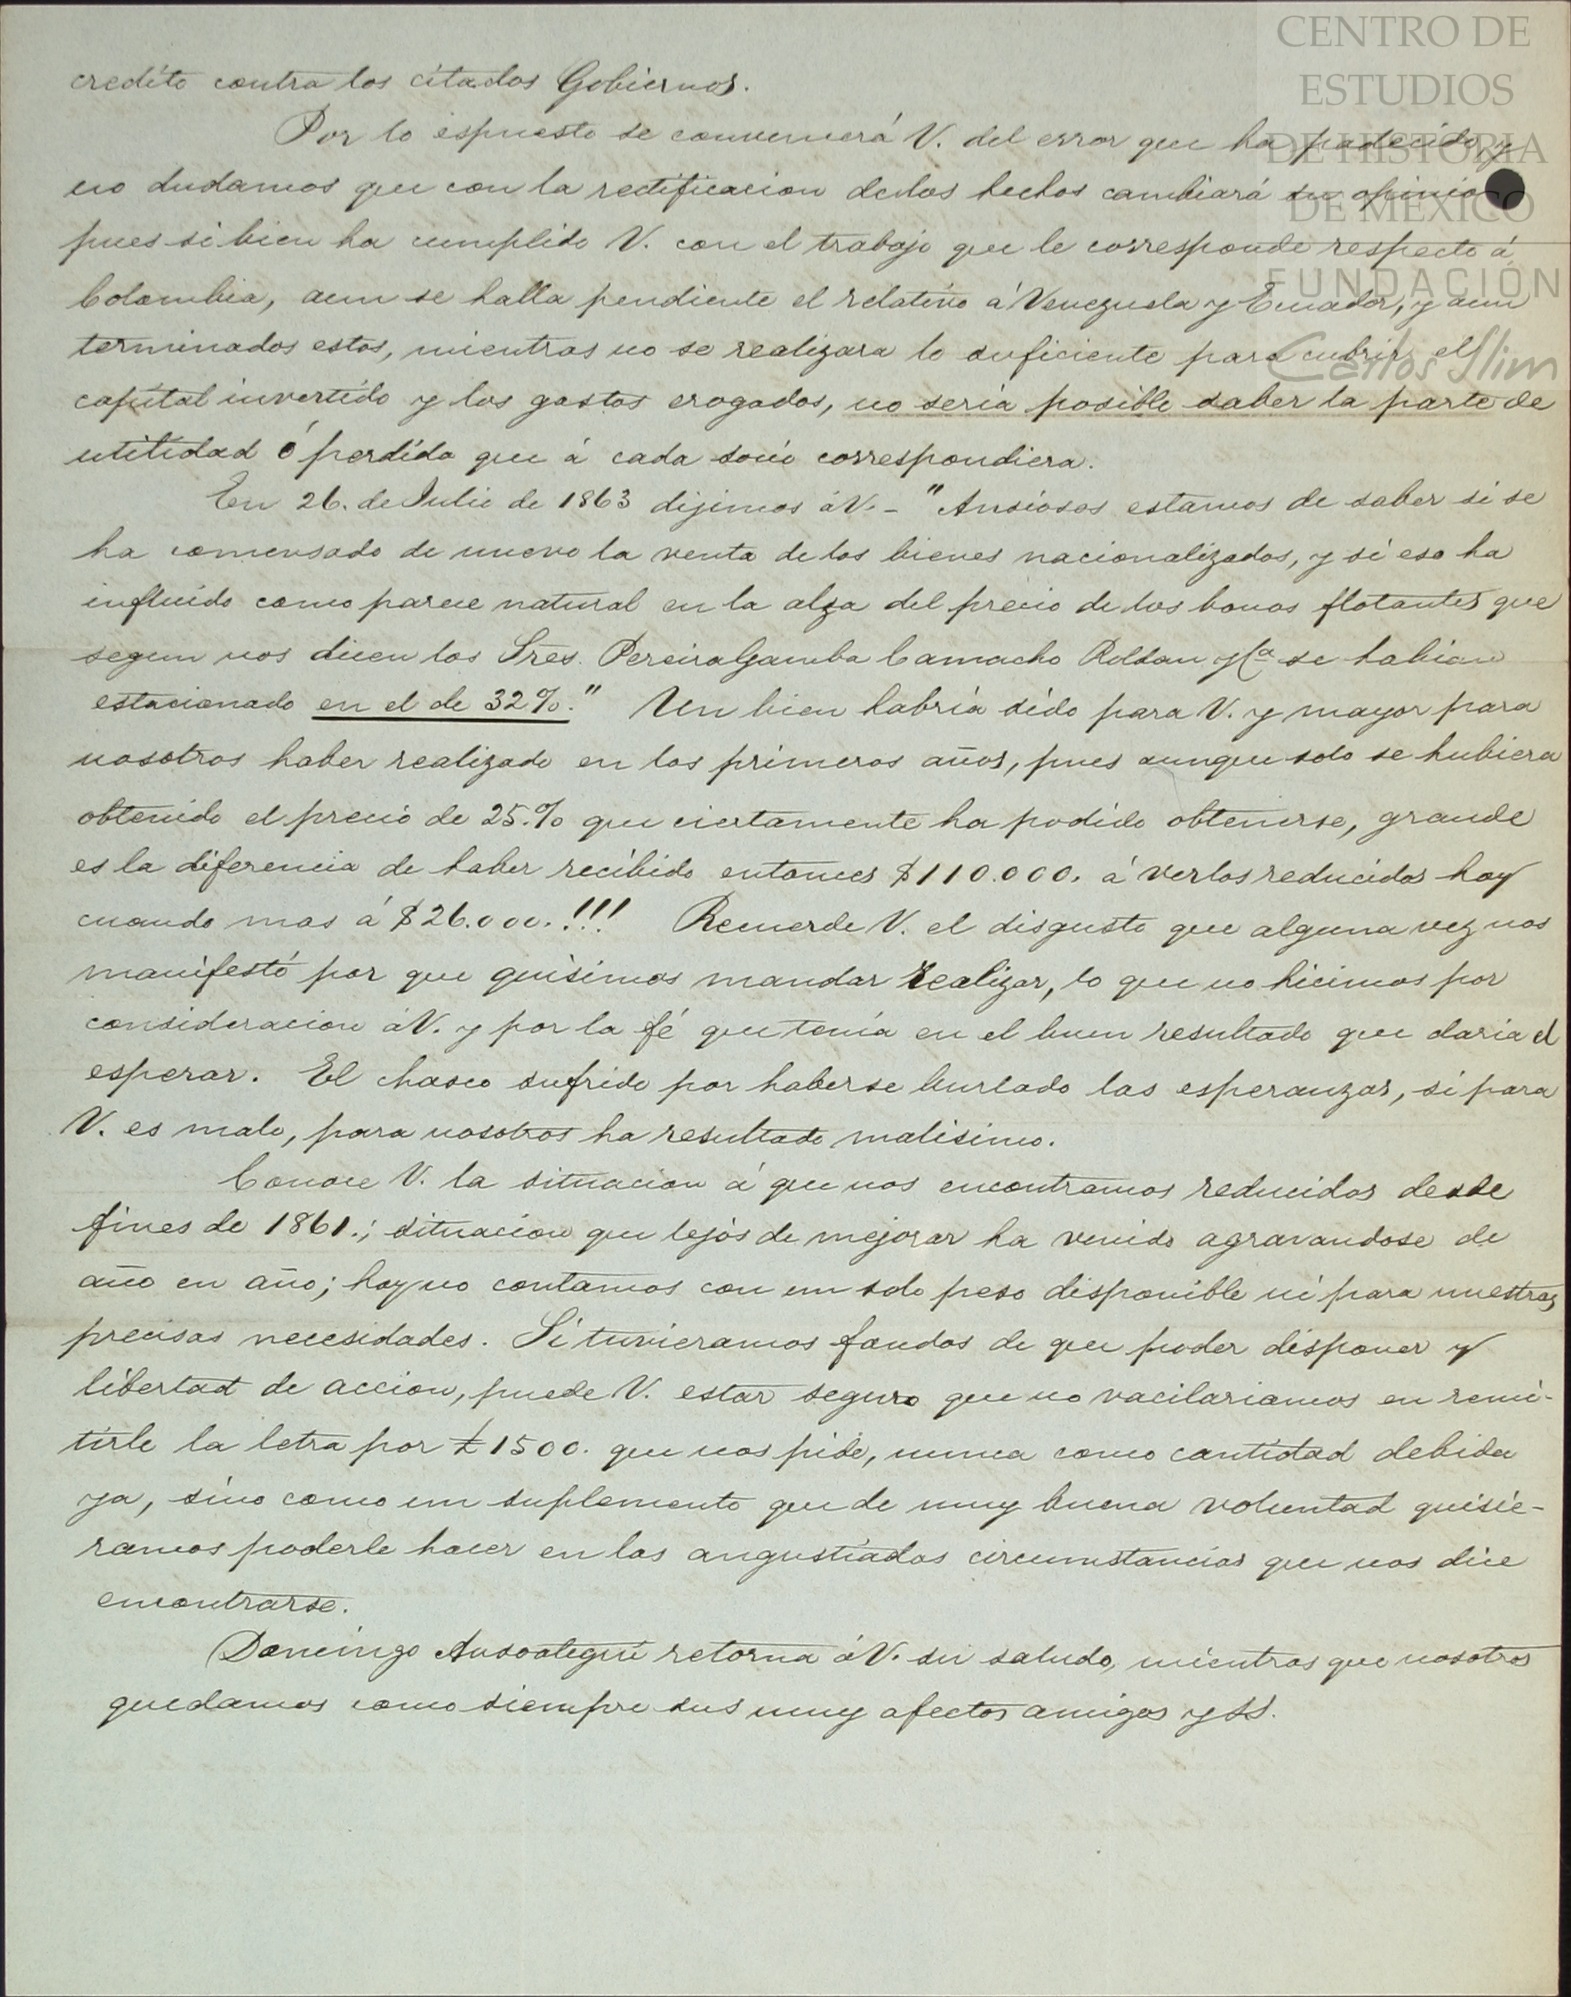 CENTRO DE
ESTUDIOS
DE HISTORIA
DE MEXICO
FUNDACIÓN
Carlos Slim
credito contra los citados Gobiernos.
Por lo espuesto se convencerá V. del error que ha padecido, y
no dudamos que con la rectificacion de los hechos cambiará su opinio
pues si bien ha cumplido V. con el trabajo que le corresponde respecto á
Colombia, aun se halla pendiente el relativo á Venezuela y Ecuador, y aun
terminados estos, mientras no se realizara lo suficiente para cubrir el
capital invertido y los gastos erogados, no seria posible saber la parte de
utilidad ó perdida que á cada socio correspondiera.
En 26. de Julio de 1863 dijimos á V. - "Ansiosos estamos de saber si se
ha comensado de nuevo la venta de los bienes nacionalizados, y si eso ha
influido como parece natural en la alza del precio de los bonos flotantes que
segun nos dicen los Sres. Pereira Gamba Camacho Roldan y Ca se habian
estacionado en el de 32%." Un bien habría sido para V. y mayor para
nosotros haber realizado en los primeros años, pues aunque solo se hubiera
obtenido el precio de 25.% que ciertamente ha podido obtenerse, grande
es la diferencia de haber recibido entonces $110.000. á verlos reducidos hoy
cuando mas á $26.000.!!! Recuerde V. el disgusto que alguna vez nos
manifestó por que quisimos mandar realizar, lo que no hicimos por
consideracion á V. y por la fé que tenía en el buen resultado que daria el
esperar. El chasco sufrido por haberse burlado las esperanzas, si para
V. es malo, para nosotros ha resultado malisimo.
Conoce V. la situacion á que nos encontramos reducidos desde
fines de 1861.; situacion que lejos de mejorar ha venido agravandose de
año en año; hoy no contamos con un solo peso disponible ni para nuestras
precisas necesidades. Si tuvieramos fondos de que poder disponer y
libertad de accion, puede V. estar seguro que no vacilariamos en remi-
tirle la letra por £1500. que nos pide, nunca como cantidad debida
ya, sino como un suplemento que de muy buena voluntad quisie-
ramos poderle hacer en las angustiadas circumstancias que nos dice
encontrarse.
Domingo Ansoategui retorna á V. su saludo, mientras que nosotros
quedamos como siempre sus muy afectos amigos y SS.